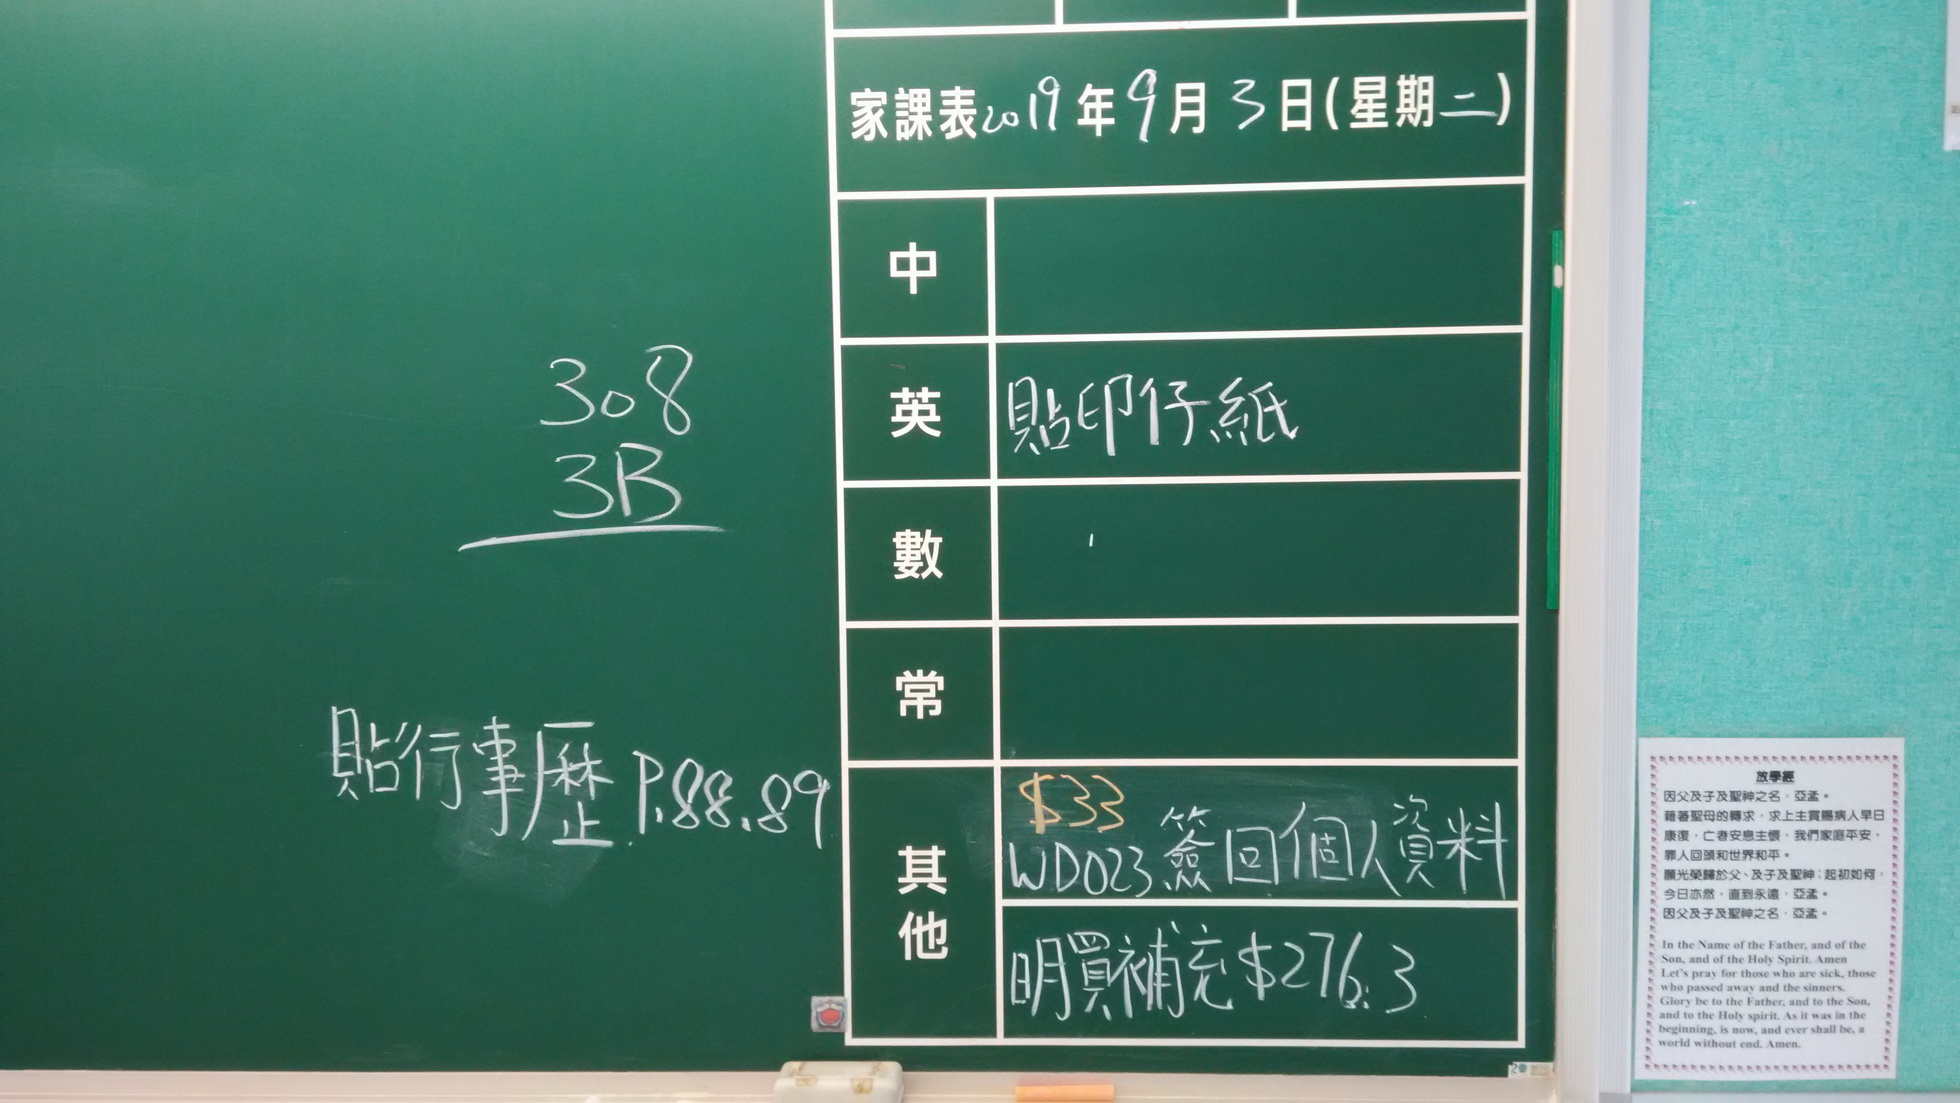 家課表2019年9月3日(星期二)
中
英 貼印仔紙
數
常
其他
$33
WD023簽回個人資料
明買補充$276.3
308
3B
貼行事歷 P.88.89
放學經
因父及子及聖神之名,亞孟。
藉著聖母的轉求,求上主賞賜病人早日
康復,亡者安息主懷,我們家庭平安,
罪人回頭和世界和平。
願光榮歸於父、及子及聖神;起初如何,
今日亦然,直到永遠,亞孟。
因父及子及聖神之名,亞孟。
In the Name of the Father, and of the
Son, and of the Holy Spirit. Amen
Let's pray for those who are sick, those
who passed away and the sinners.
Glory be to the Father, and to the Son,
and to the Holy spirit. As it was in the
beginning, is now, and ever shall be, a
world without end. Amen.